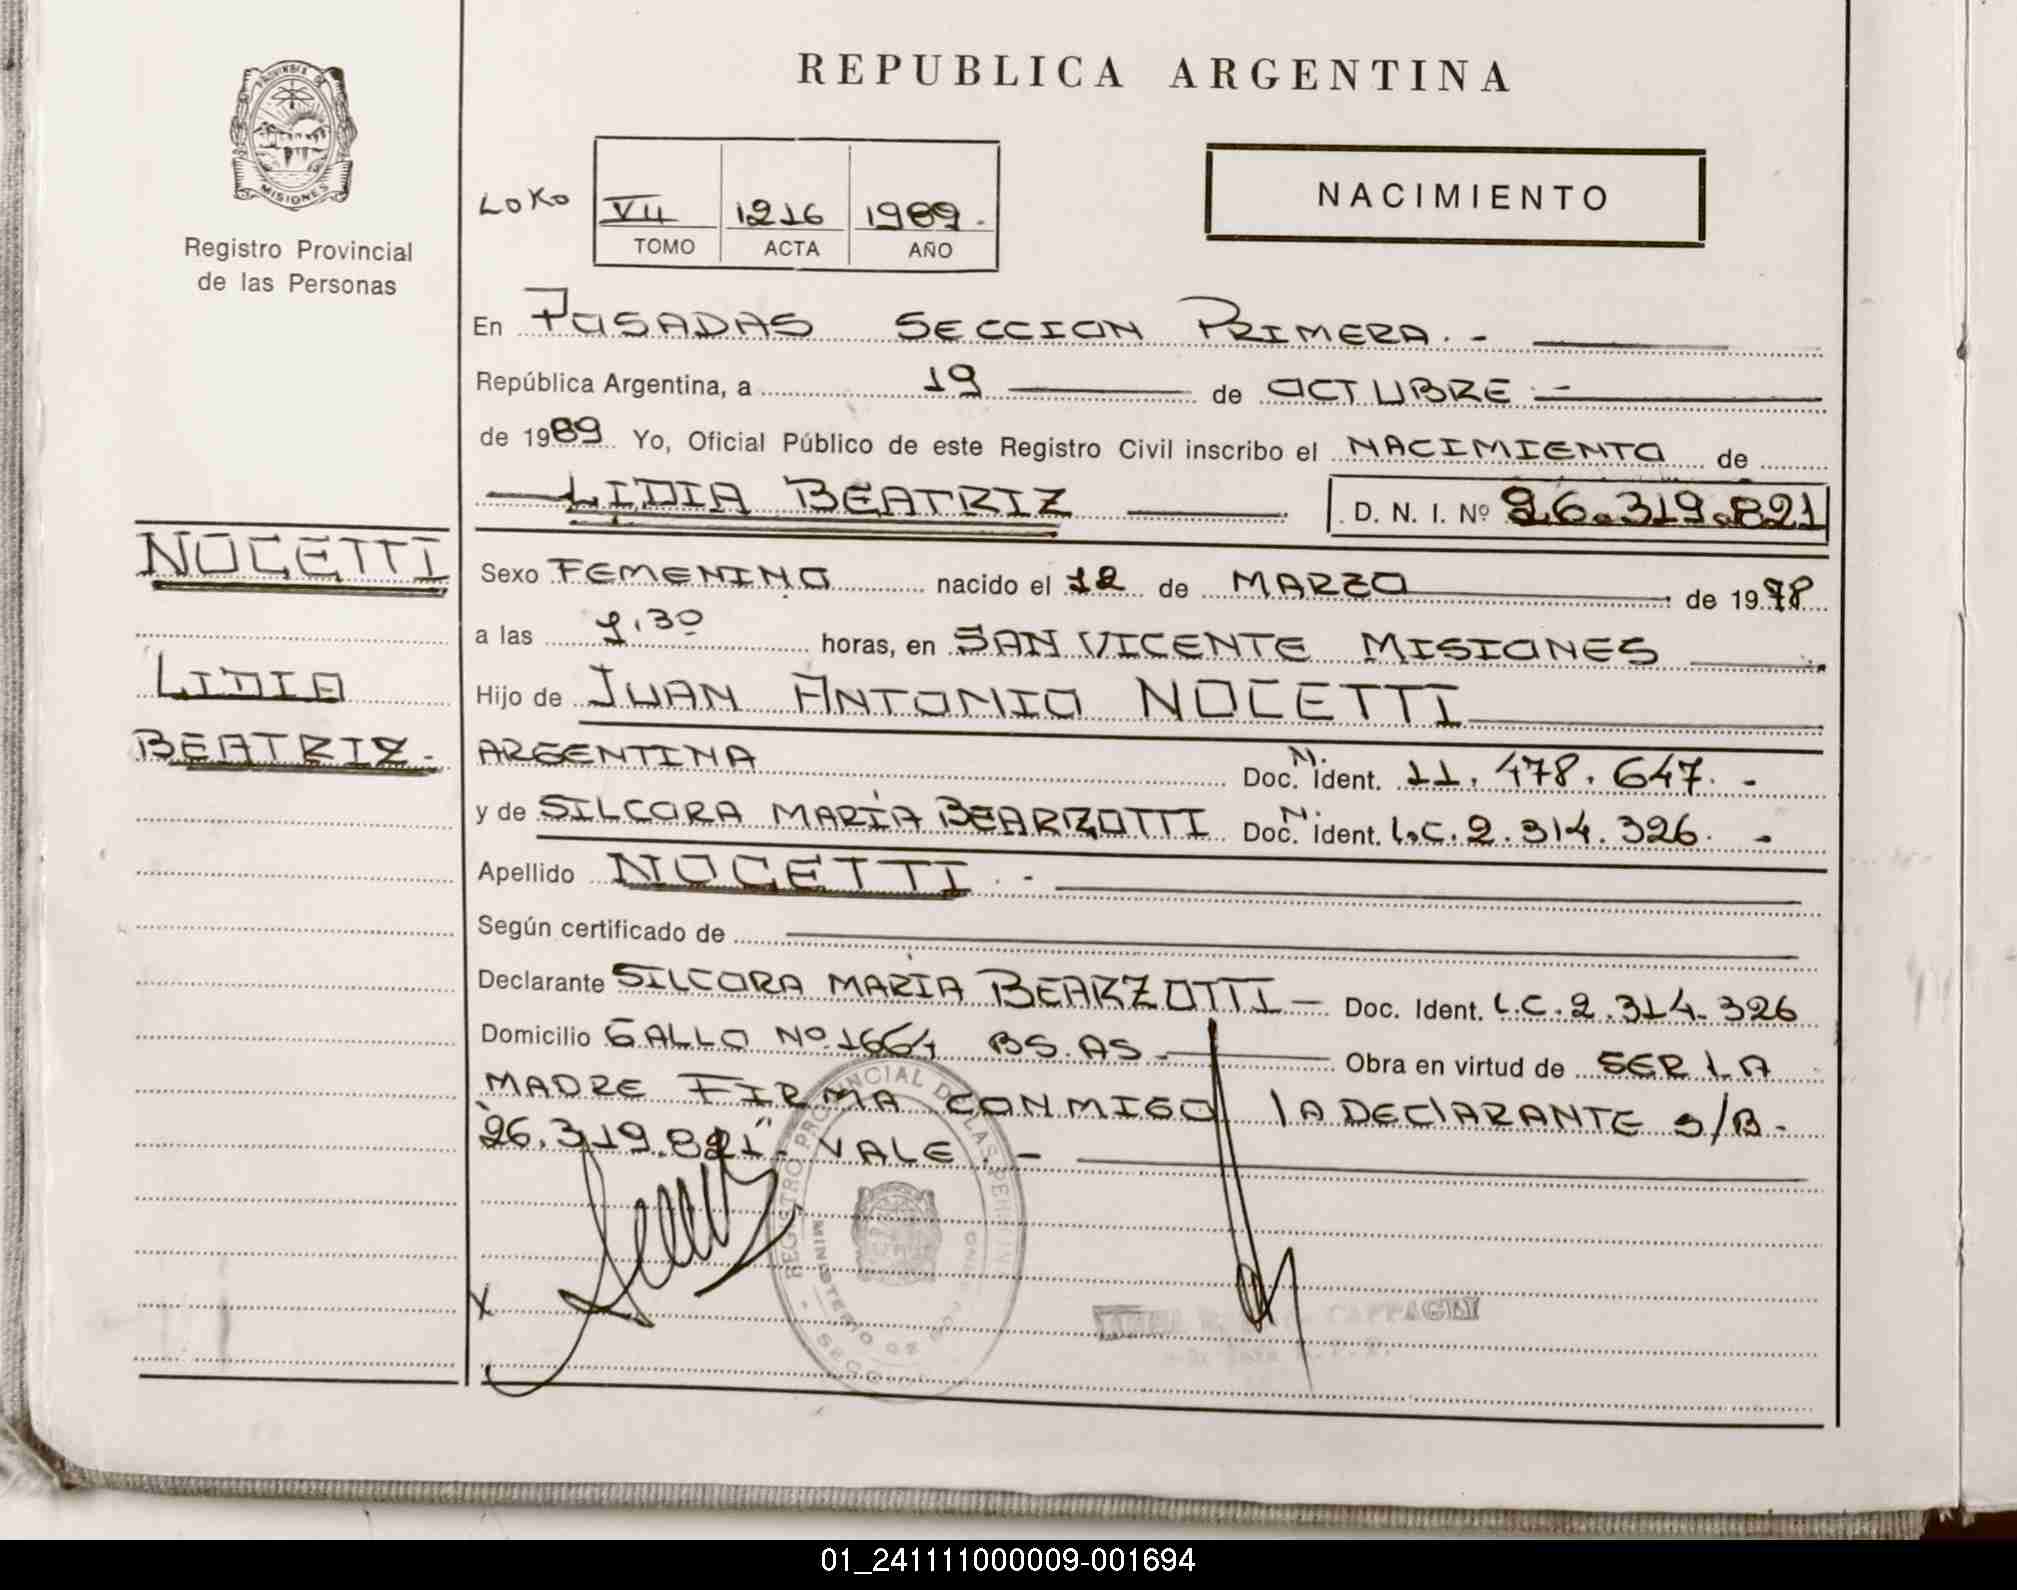 PROVINCIA DE
MISIONES
Registro Provincial
de las Personas
REPUBLICA ARGENTINA
NACIMIENTO
LOKO
VII 1216 1989.
TOMO ACTA AÑO
En POSADAS SECCION PRIMERA.-
República Argentina, a 19 de OCTUBRE.-
de 1989 Yo, Oficial Público de este Registro Civil inscribo el NACIMIENTO de
LIDIA BEATRIZ D. N. I. Nº 26.319.821
NOCETTI
LIDIA
BEATRIZ.
Sexo FEMENINO nacido el 12 de MARZO de 1978
a las 9.30 horas, en SAN VICENTE MISIONES
Hijo de JUAN ANTONIO NOCETTI
ARGENTINA Doc. N. ident. 11.478.647.-
y de SILCORA MARÍA BEARZOTTI Doc. N. ident. L.C.2.314.326.-
Apellido NOCETTI.-
Según certificado de
Declarante SILCORA MARÍA BEARZOTTI Doc. Ident. L.C.2.314.326
Domicilio GALLO Nº 1664 BS.AS- Obra en virtud de SER LA
MADRE FIRMA CONMIGO LA DECLARANTE S/B.
"26.319.821". VALE.-
X
REGISTRO PROVINCIAL DE LAS PERSONAS
MINISTERIO DE
01_241111000009-001694